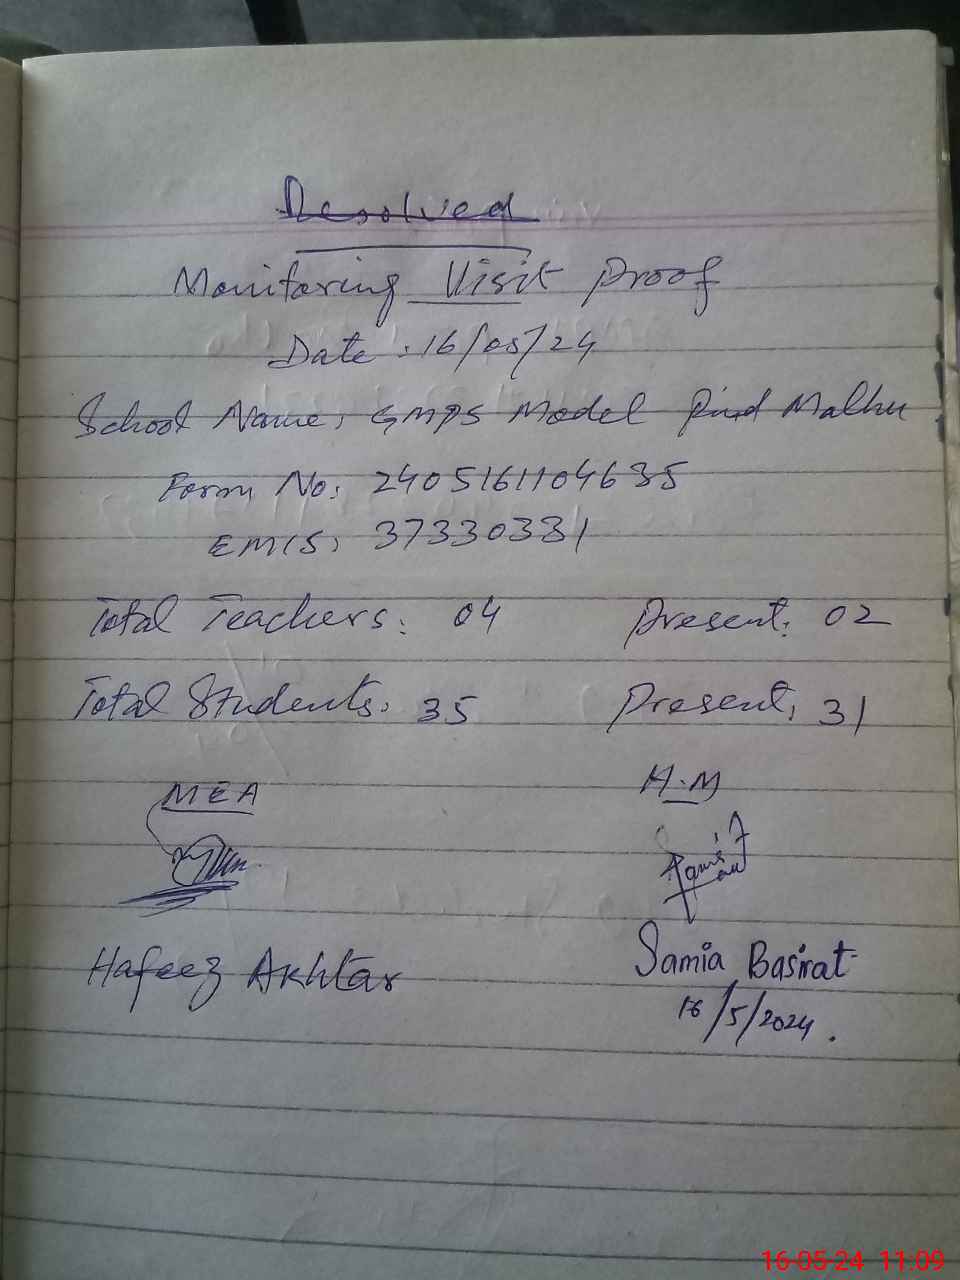 Resolved
Monitoring Visit Proof
Date: 16/05/24
School Name: GMPS Model Pind Malhu
Form No: 2405161104635
EMIS: 37330331
Total Teachers: 04 Present: 02
Total Students: 35 Present: 31
MEA H.M
Hafeez Akhtar Samia Basirat
16/5/2024.
16-05-24 11:09